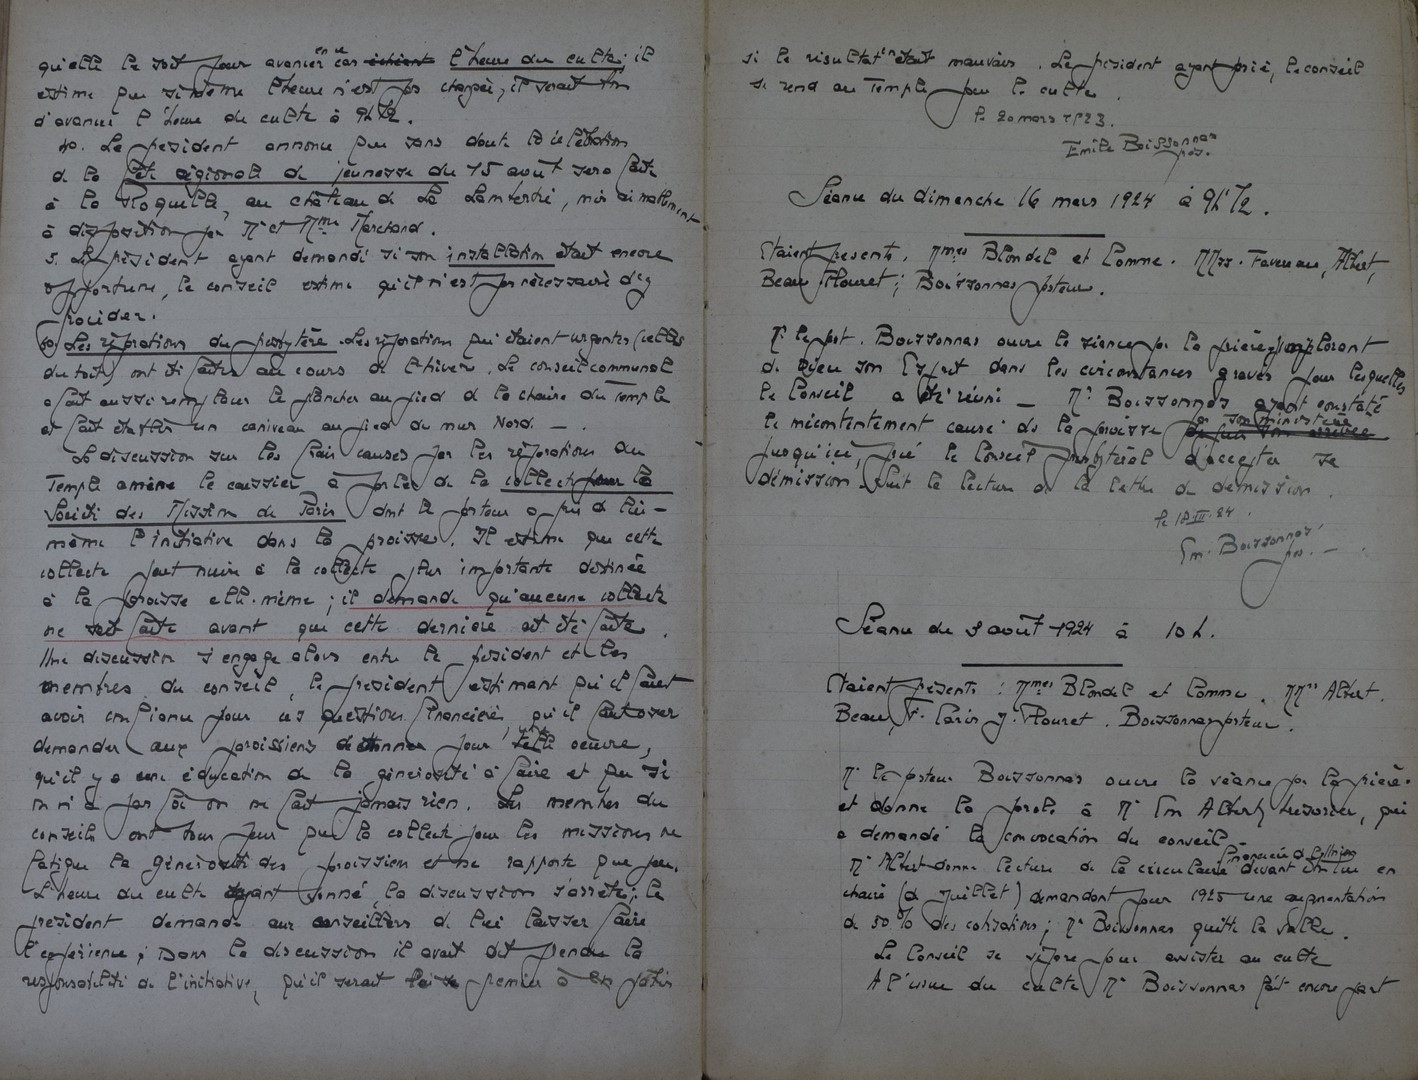 qu'elle le soit pour avancer en ce cas l'heure du culte; il
estime que si même l'heure n'est pas changée, il serait bon
d'avancer l'heure du culte à 9h½.
4o. Le président annonce que sans doute la célébration
de la fête régionale de jeunesse du 15 août sera faite
à la Roquille, au château de La Lambertie, mis aimablement
à disposition par Mr et Mme Marchand.
5. Le président ayant demandé si son installation était encore
opportune, le conseil estime qu'il n'est pas nécessaire d'y
procéder.
6o Les réparations du presbytère. Les réparations qui étaient urgentes (celles
du toit) ont été faites au cours de l'hiver. Le conseil communal
a fait aussi remplacer le plancher au pied de la chaire du Temple
et fait établir un caniveau au pied du mur Nord —.
La discussion sur les frais causés par les réparations du
Temple amène le caissier à parler de la collecte pour la
Société des Mission de Paris dont le pasteur a pris de lui-
même l'initiative dans la paroisse. Il estime que cette
collecte peut nuire à la collecte plus importante destinée
à la paroisse elle-même; il demande qu'aucune collecte
ne soit faite avant que cette dernière ait été faite.
Une discussion s'engage alors entre le président et les
membres du conseil, le président estimant qu'il faut
avoir confiance pour ces questions financières, qu'il faut oser
demander aux paroissiens de donner pour telle oeuvre,
qu'il y a une éducation de la générosité à faire et que si
on n'a pas foi on ne fait jamais rien. Les membres du
conseils ont tous peur que la collecte pour les missions ne
fatigue la générosité des paroissiens et ne rapporte que peu.
L'heure du culte ayant sonné, la discussion s'arrête; le
président demande aux conseillers de lui laisser faire
l'expérience; Dans la discussion il avait dit prendre la
responsabilité de l'initiative, qu'il serait le premier à en pâtir
si le résultat en était mauvais. Le président ayant prié, le conseil
se rend au Temple pour le culte.
le 20 mars 1923.
Emile Boissonnas
pas.
Séance du dimanche 16 mars 1924 à 9h½.
Etaient présents. Mmes Blondel et Comme. MMrs. Favereau, Albert,
Beau, Plouret; Boissonnas pasteur.
Mr le past. Boissonnas ouvre la séance par la prière, implorant
de Dieu son Esprit dans les circonstances graves pour lesquelles
le Conseil a été réuni — Mr Boissonnas ayant constaté
le mécontentement causé ds la paroisse par son ministère
jusqu'ici, prie le Conseil presbytéral d'accepter sa
démission. Suit la lecture de la lettre de démission.
le 18 III. 24.
Em. Boissonnas
pas. —
Séance du 3 août 1924 à 10 h.
Etaient présents: Mmes Blondel et Comme. MMrs Albert.
Beau, F. Paris, J. Plouret. Boissonnas pasteur.
Mr le pasteur Boissonnas ouvre la séance par la prière.
et donne la parole à Mr Em Albert, trésorier, qui
a demandé la convocation du conseil.
Mr Albert donne lecture de la circulaire devant être lue en
chaire (de Juillet) demandant pour 1925 une augmentation
de 50% des cotisations; Mr Boissonnas quitte la salle.
Le Conseil se sépare pour assister au culte
A l'issue du culte Mr Boissonnas fait encore part